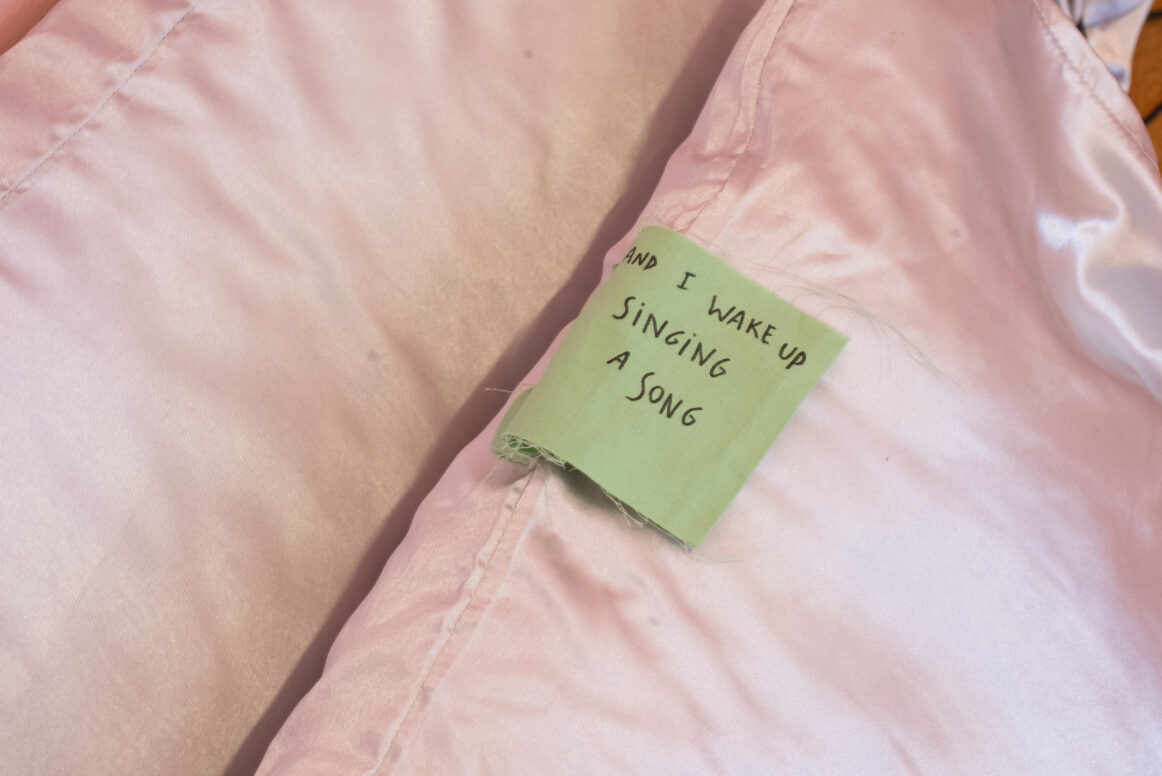 AND I WAKE UP
SiNGiNG
A SONG